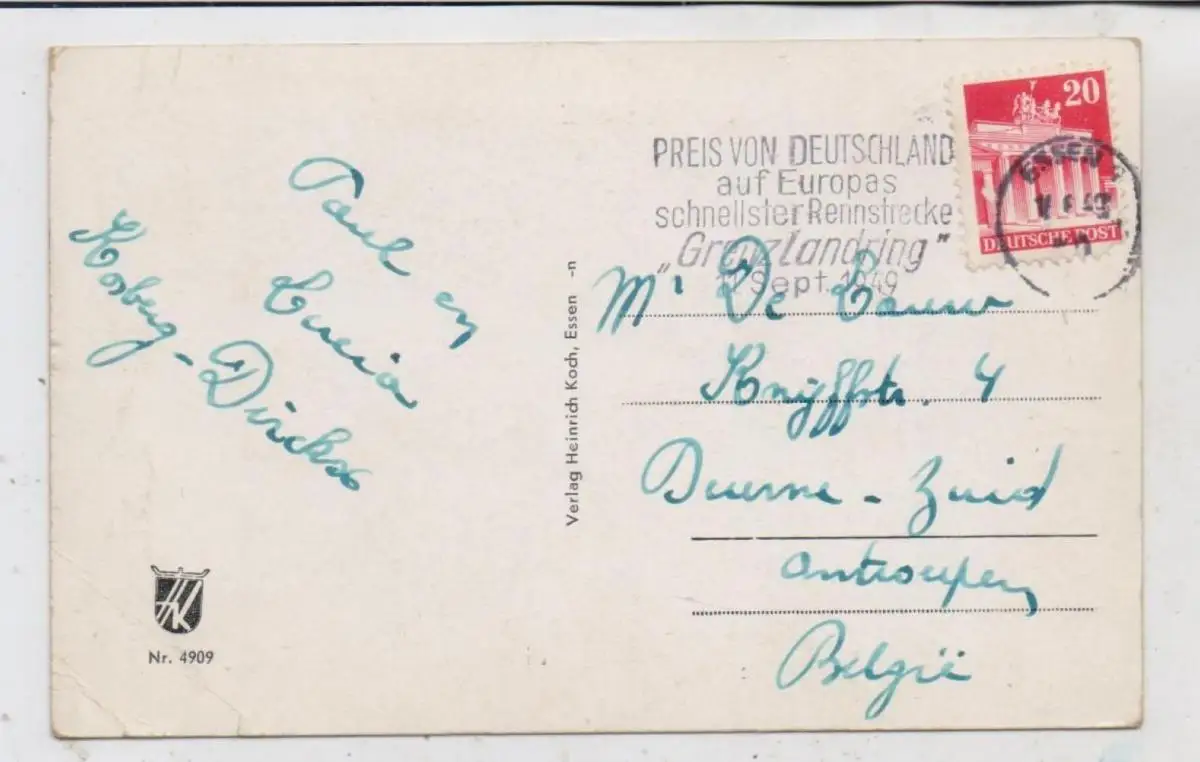 PREIS VON DEUTSCHLAND
auf Europas
schnellster Rennstrecke
„Grenzlandring"
11 Sept. 1949
20
DEUTSCHE POST
ESSEN
Paul en
Lucia
Kosberg - Dirckx
Verlag Heinrich Koch, Essen -n
Mr De Cauwer
Knÿffstr. 4
Deurne - Zuid
Antwerpen
België
HK
Nr. 4909